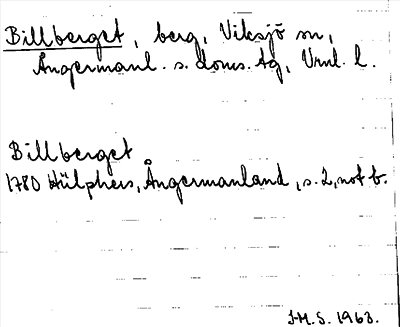 Billberget, berg, Viksjö sn,
Ångermanl. s. doms. tg, Vrnl. l.
Billberget
1780 Hülphers, Ångermanland, s. 2, not b.
I.M.S. 1963.